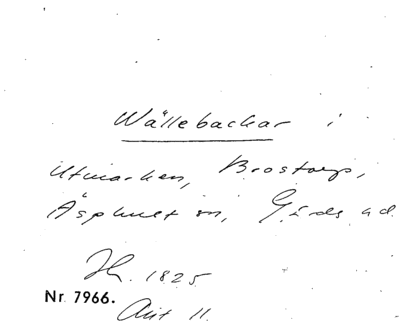 Wällebackar i
Utmarken, Brostorp,
Äsphult sn, Gärds hd
Jh. 1825
Nr 7966.
Akt 11.